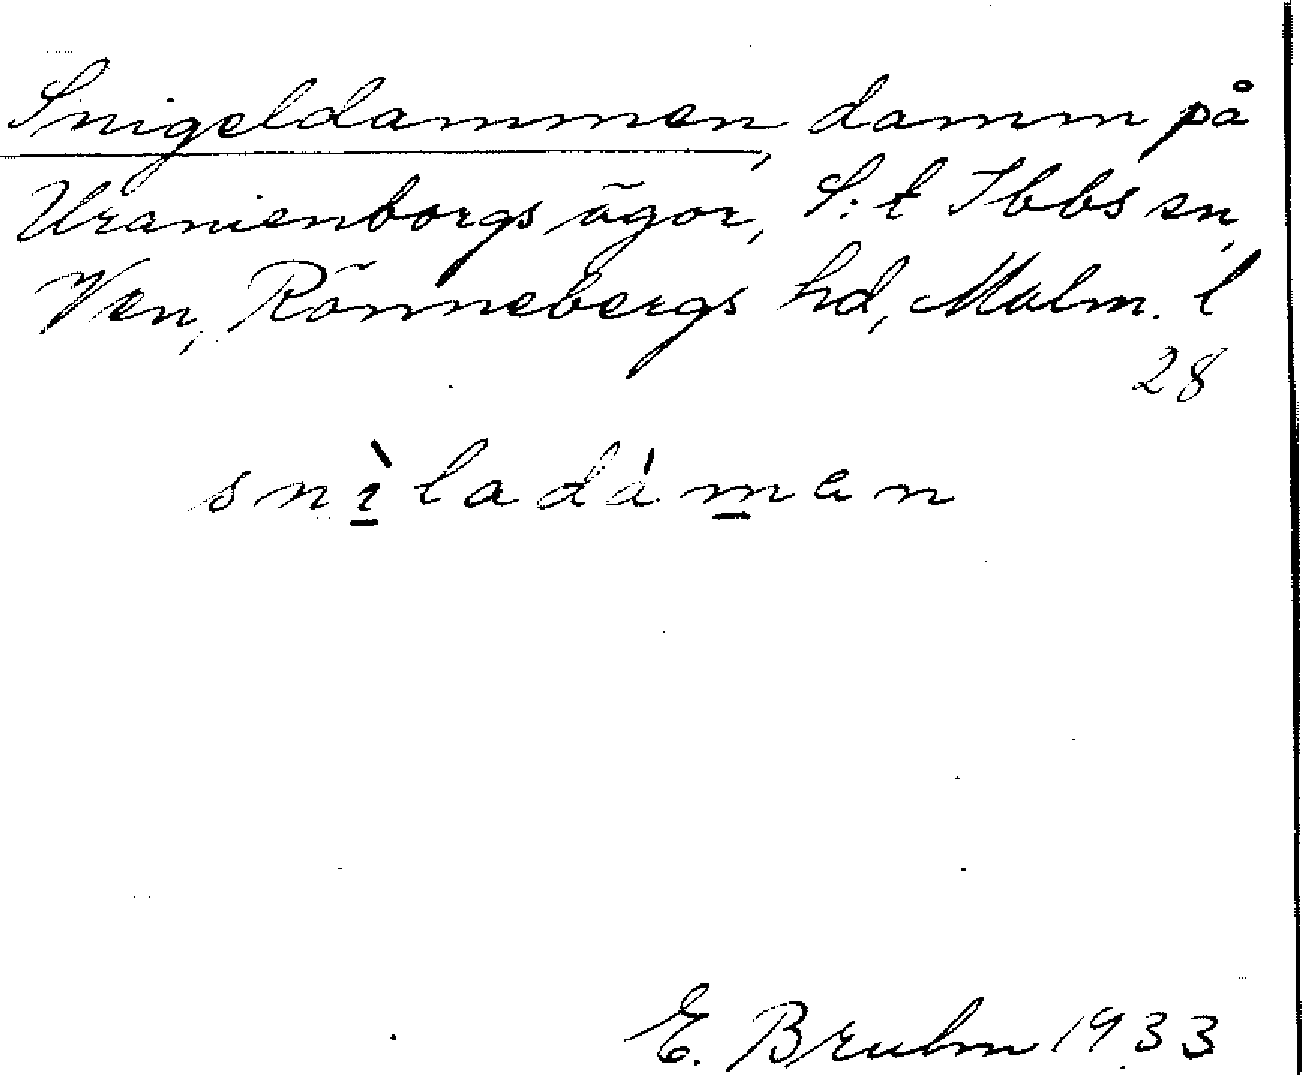 Snigeldammen, damm på
Uranienborgs ägor, S:t Ibbs sn,
Ven, Rönnebergs hd, Malm. l
28
snìladáman
E. Bruhn 1933